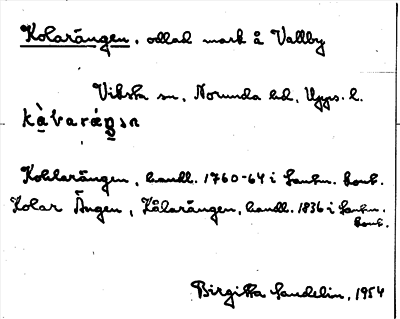 Kolarängen, odlad mark å Vallby
Viksta sn, Norunda hd, Upps. l.
kàbaráŋən
Kohlarängen, handl. 1760-64 i Lantm. kont.
Kolar Ängen, Kålarängen, handl. 1836 i Lantm.
kont.
Birgitta Sandelin, 1954